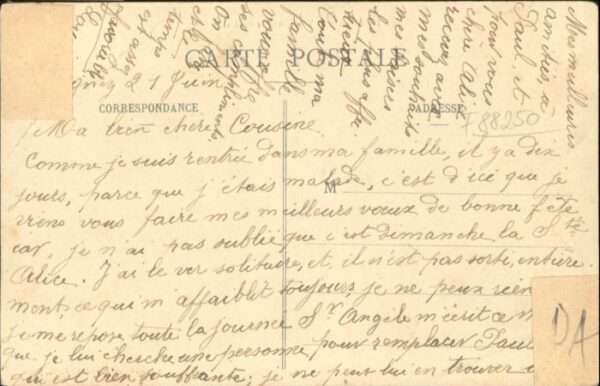 CARTE POSTALE
CORRESPONDANCE
ADRESSE
M
21 Juin
Ma bien chère Cousine
Comme je suis rentrée dans ma famille, il y a dix
jours, parce que j'étais malade, c'est d'ici que je
viens vous faire mes meilleurs vœux de bonne fête
car, je n'ai pas oublié que c'est dimanche la Ste
Alice. J'ai le ver solitaire, et, il n'est pas sorti, entière
mont, ce qui m'affaiblit toujours je ne peux rien
je me repose toute la journée Sr Angèle m'écrit ce
que je lui cherche une personne, pour remplacer Paul
qui est bien souffrante; je ne peut lui en trouver
Mes meilleures
amitiés, à
Paul. et
pour vous
chère Alice
recevez avec
mes souhaits
mes
les plus affec
Toute ma
famille
vous
ses
On
temps
est assez
F 88250
DA